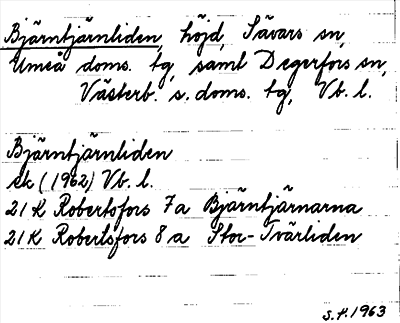 Bjärntjärnliden, höjd, Sävars sn,
Umeå doms. tg, samt Degerfors sn,
Västerb. s. doms. tg, Vb. l.
Bjärntjärnliden
ek (1962) Vb. l.
21 K Robertsfors 7a Bjärntjärnarna
21 K Robertsfors 8a Stor-Tvärliden
S.P. 1963